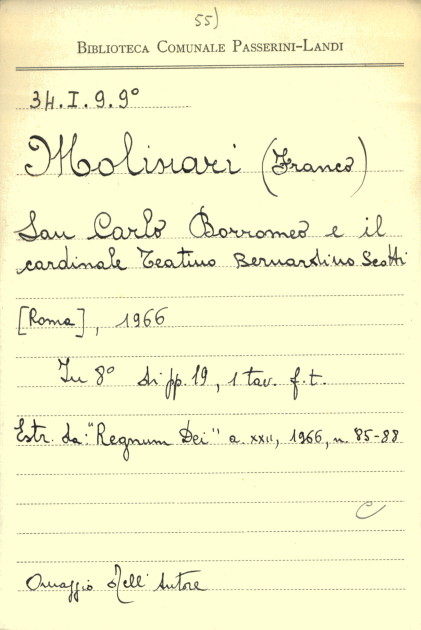 55)
BIBLIOTECA COMUNALE PASSERINI-LANDI
34.I.9.9°
Molinari (Franco)
San Carlo Borromeo e il
cardinale Teatino Bernardino Scotti
[Roma], 1966
In 8° di pp. 19, 1 tav. f.t.
Estr. da: "Regnum Dei" a. XXII, 1966, n. 85-88
C
Omaggio dell'Autore